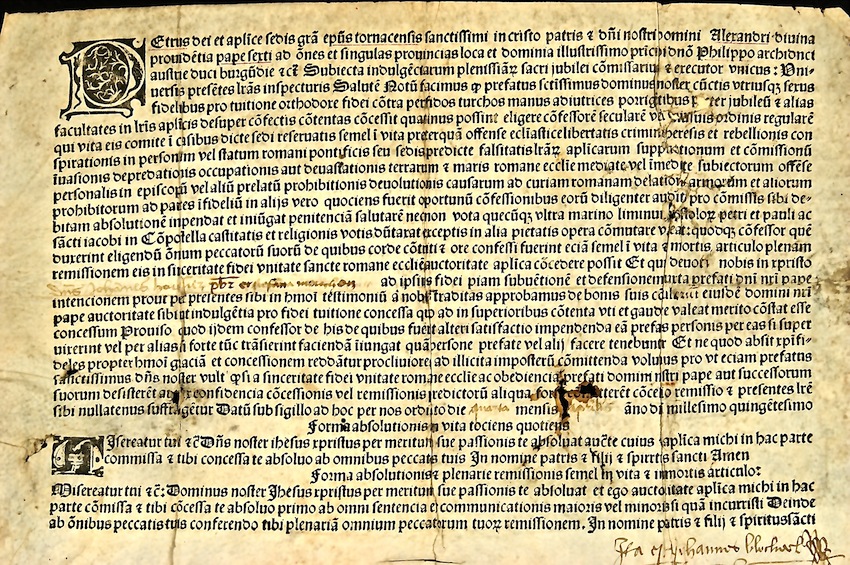 Petrus dei et aplīce sedis grā epūs tornacensis sanctissimi in cristo patris ⁊ dñi nostri domini Alexandri divina
providētia pape sexti ad ōnes et singulas provincias loca et dominia illustrissimo prīcipi dnō Philippo archiduci
austrie duci burgūdie ⁊ cē Subiecta indulgētiarum plenissiaꝝ sacri jubilei cōmissarius ⁊ executor vnicus : Vni-
versis presētes lrās inspecturis Salutē Notū facimus ꝙ prefatus sctissimus dominus noster cūctis vtriusqꝫ sexus
fidelibus pro tuitione orthodore fidei cōtra perfidos turchos manus adiutrices porrigētibus ter jubileū ⁊ alias
facultates in lrīs aplīcis desuper cōfectis cōtentas cōcessit quatinus possint eligere cōfessorē secularē regularē
qui vita eis comite ī casibus dicte sedi reservatis semel ī vita preterquā offense eclīastice libertatis criminū heresis et rebellionis con
spirationis in personam vel statum romani pontificis seu sedis predicte falsitatis lrāꝝ aplicarum suppationum et cōmissionū
īuasionis depredationis occupationis aut devastationis terrarum ⁊ maris romane ecclīe mediate vel īmediate subiectorum offēse
personalis in episcopū vel aliū prelatū prohibitionis devolutionis causarum ad curiam romanam delationis armorum et aliorum
prohibitorum ad partes īfideliū in alijs vero quociens fuerit oportunū cōfessionibus eorū diligenter auditis pro cōmissis sibi de-
bitam absolutionē inpendat et iniūgat penitenciā salutarē necnon vota quecūqꝫ vltra marino liminū apostoloꝝ petri et pauli ac
sācti iacobi in Cōpostella castitatis et religionis votis dūtaxat exceptis in alia pietatis opera cōmutare valeat: quodqꝫ cōfessor quē
duxerint eligendū ōnium peccatorū suorū de quibus corde cōtriti ⁊ ore confessi fuerint eciā semel ī vita ⁊ mortis articulo plenam
remissionem eis in sinceritate fidei vnitate sancte romane ecclīe auctoritate aplīca cōcedere possit Et qui devoti nobis in xpristo
dn̄s Johannes ad ipsius fidei piam subvētionē et defensionem iuxta prefati dnī nrī pape
intencionem prout per presentes sibi in hmōi testimoniū a nobis traditas approbamus de bonis suis eiusdē domini nrī
pape auctoritate sibi ut indulgētia pro fidei tuitione concessa quo ad in superioribus cōtenta vti et gaudere valeat merito cōstat esse
concessum Proviso quod ijdem confessor de his de quibus fuerit alteri satisfactio impendenda eā prefatis personis per eas si super
vixerint vel per alias si forte tūc trāsierint faciendā iniungat quā persone prefate vel alij facere tenebuntur Et ne quod absit xpīfi-
deles propter hmōi graciā et concessionem reddātur procliviores ad illicita imposterū cōmittenda volumus pro vt eciam prefatus
sanctissimus dñs noster vult ꝙ si a sinceritate fidei vnitate romane ecclīe ac obediencia prefati domini nostri pape aut successorum
suorum desisterēt aut confidencia cōcessionis vel remissionis predictorū aliqua cōmitterēt cōcessio remissio ⁊ presentes lrē
sibi nullatenus suffragētur Datū sub sigillo ad hoc per nos ordīato die quarta mensis āno dī millesimo quingētesimo
Forma absolutionis in vita tociens quotiens
Misereatur tui ⁊ cē Dñs noster ihesus xpristus per meritum sue passionis te absolvat aucte cuius ⁊ aplīca michi in hac parte
commissa ⁊ tibi concessa te absolvo ab omnibus peccatis tuis In nomine patris ⁊ filij ⁊ spirītꝰ sancti Amen
Forma absolutionis ⁊ plenarie remissionis semel in vita ⁊ in mortis articulo:
Misereatur tui ⁊ cē: Dominus noster Jhesus xpristus per meritum sue passionis te absolvat et ego auctoritate aplīca michi in hac
parte cōmissa ⁊ tibi cōcessa te absolvo primo ab omni sentencia excommunicationis maioris vel minoris si quam incurristi Deinde
ab ōnibus peccatis tuis conferendo tibi plenariā omnium peccatorum tuoꝝ remissionem. In nomine patris ⁊ filij ⁊ spiritus sācti
Ita est Johannes